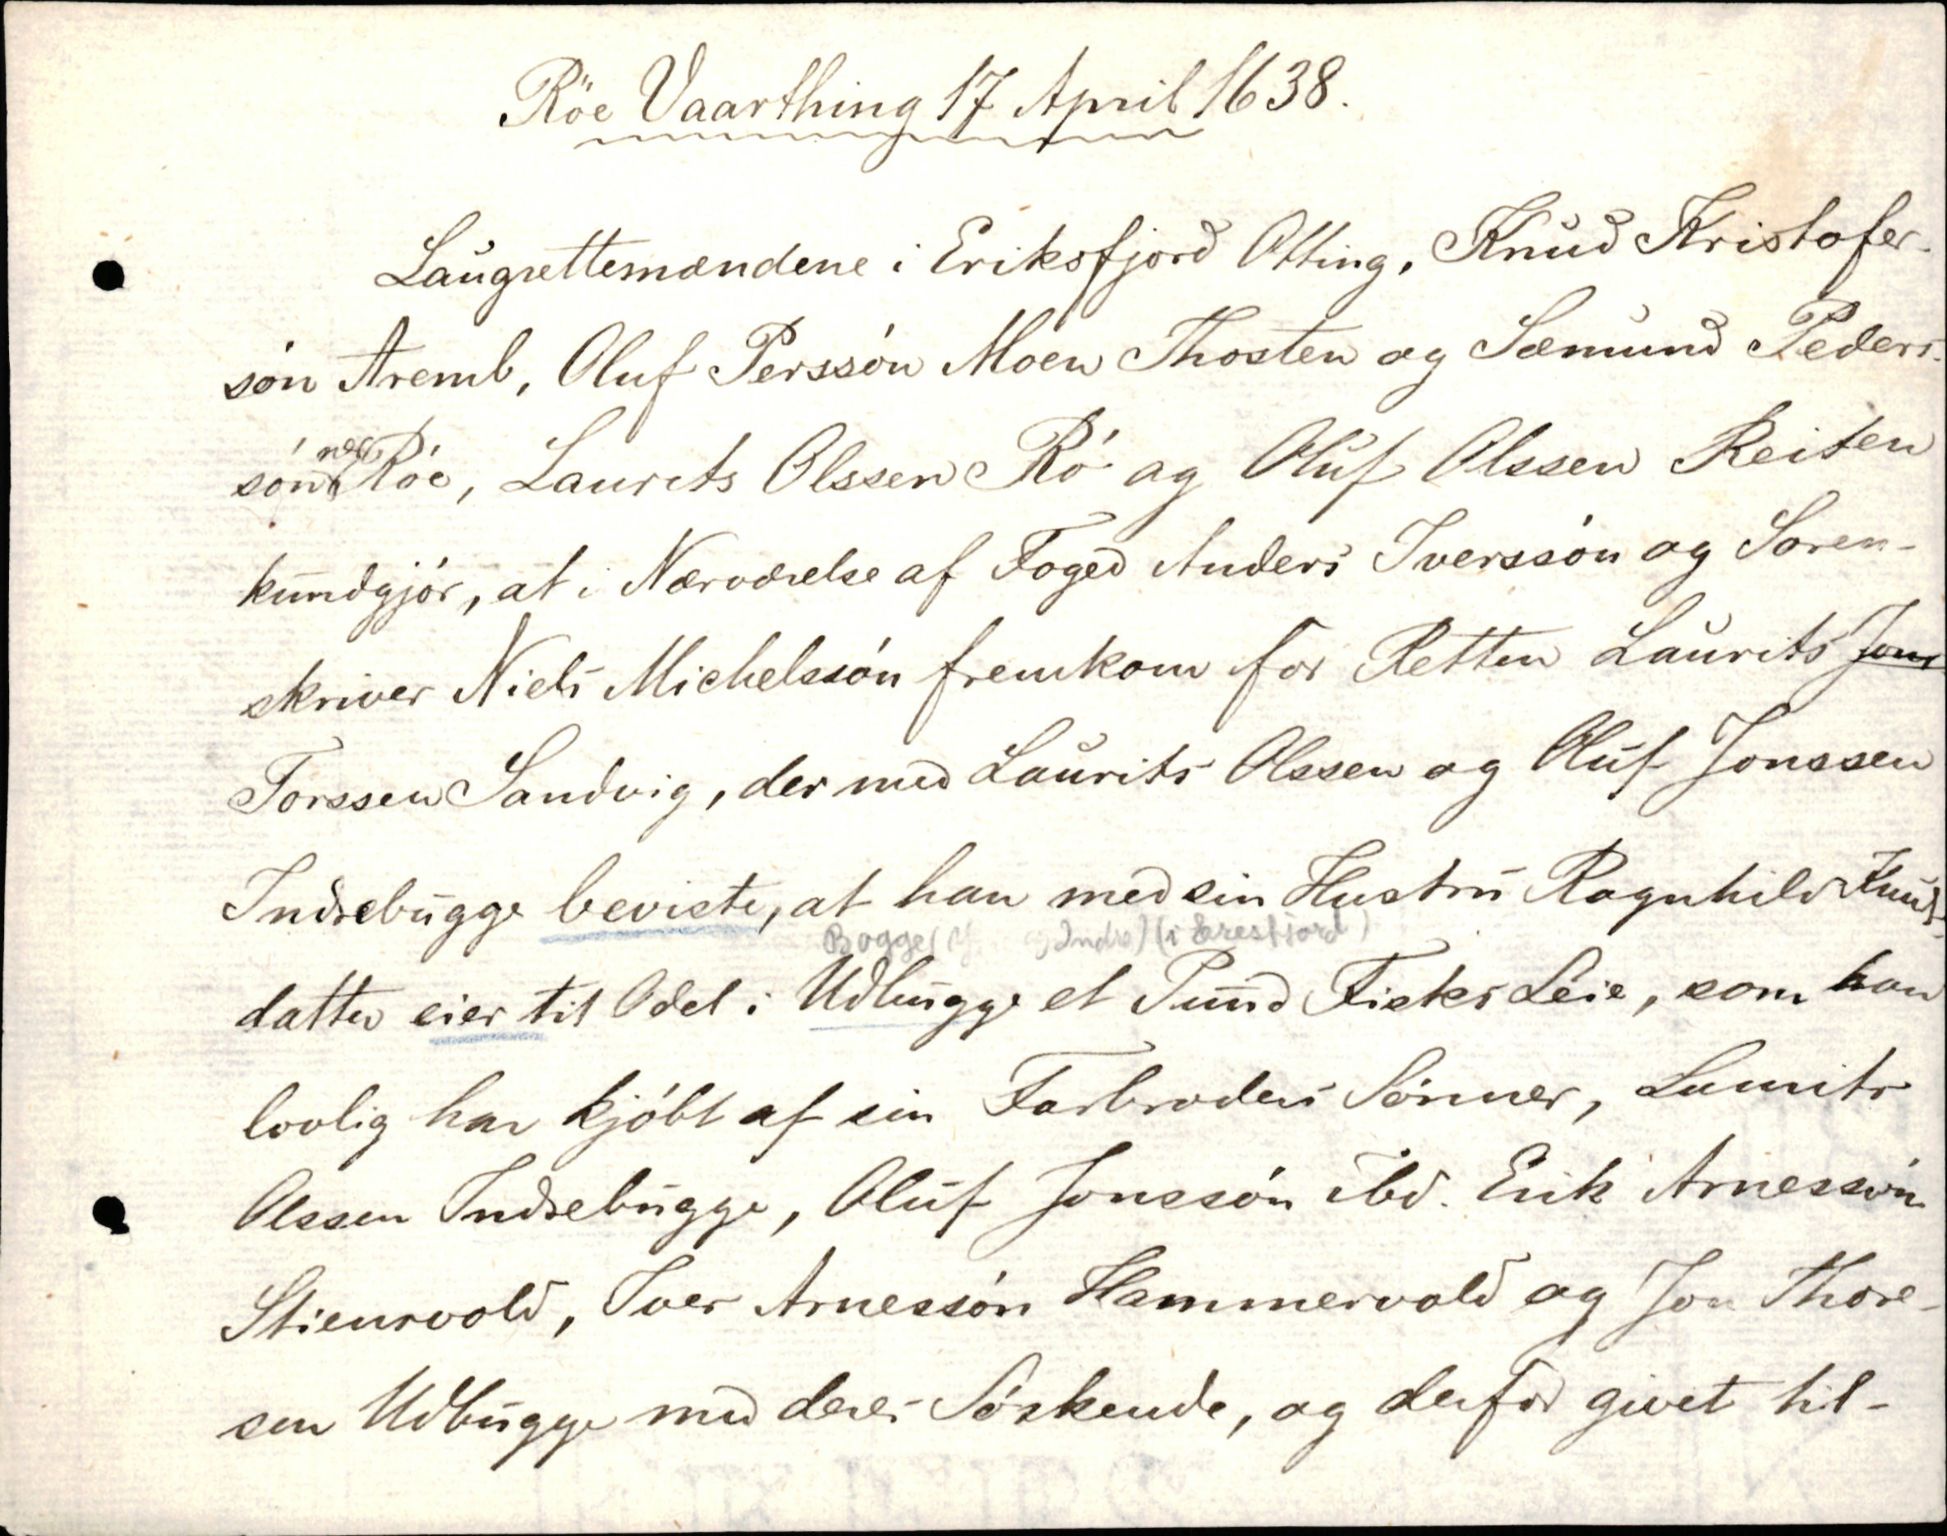 Röe Vaarthing 17 April 1638.
Laugrettemændene i Eriksfjord Otting, Knud Kristofer-
són Aremb, Oluf Perssón Moen Thosten og Sæmund Peders-
són Róe, Laurits Olssen Ró og Oluf Olssen Reiten
kundgjór, at i Nærværelse af Foged Anders Iverssón og Soren-
skriver Niels Michelssón fremkom for Retten Laurits Jons
Torssen Sandvig, der med Laurits Olssen og Oluf Jonssen
Indrebugge beviste, at han med sin Hustru Ragnhild Knuds-
Bogge Indre) (i Eresfjord)
datter eier til Odel i Udbugge et Pund Fisks Leie, som han
lovlig har kjóbt af sin Farbroders Sónner, Laurits
Olssen Indrebugge, Oluf Jonssón ibd. Erik Arnessón
Stiensvold, Iver Arnessón Hammervold og Jon Thore-
sen Udbugge med deres Sóskende, og derfor givet til-